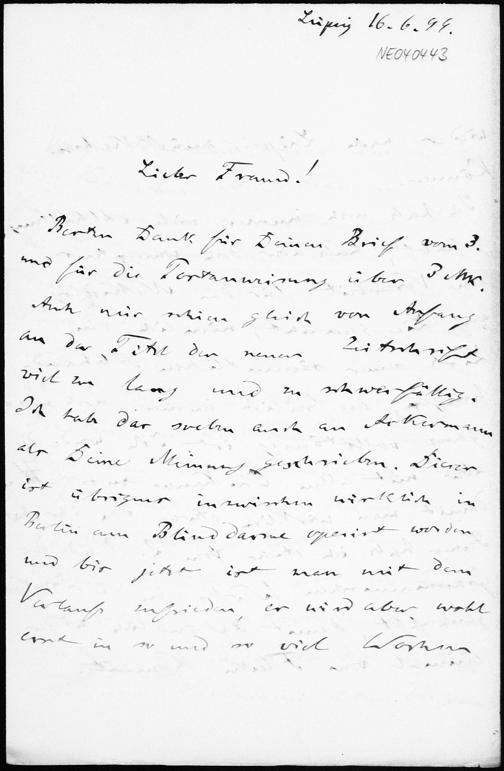 Leipzig 16.6.99.
NE040443
Lieber Freund!
Besten Dank für Deinen Brief vom 3.
und für die Postanweisung über 3 Mk.
Auch mir schien gleich von Anfang
an der Titel der neuen Zeitschrift
viel zu lang und zu schwerfällig.
Ich hab das soeben auch an Ackermann
als Deine Meinung geschrieben. Dieser
ist übrigens inzwischen wirklich in
Berlin am Blinddarme operiert worden
und bis jetzt ist man mit dem
Verlaufe zufrieden, er wird aber wohl
erst in so und so viel Wochen